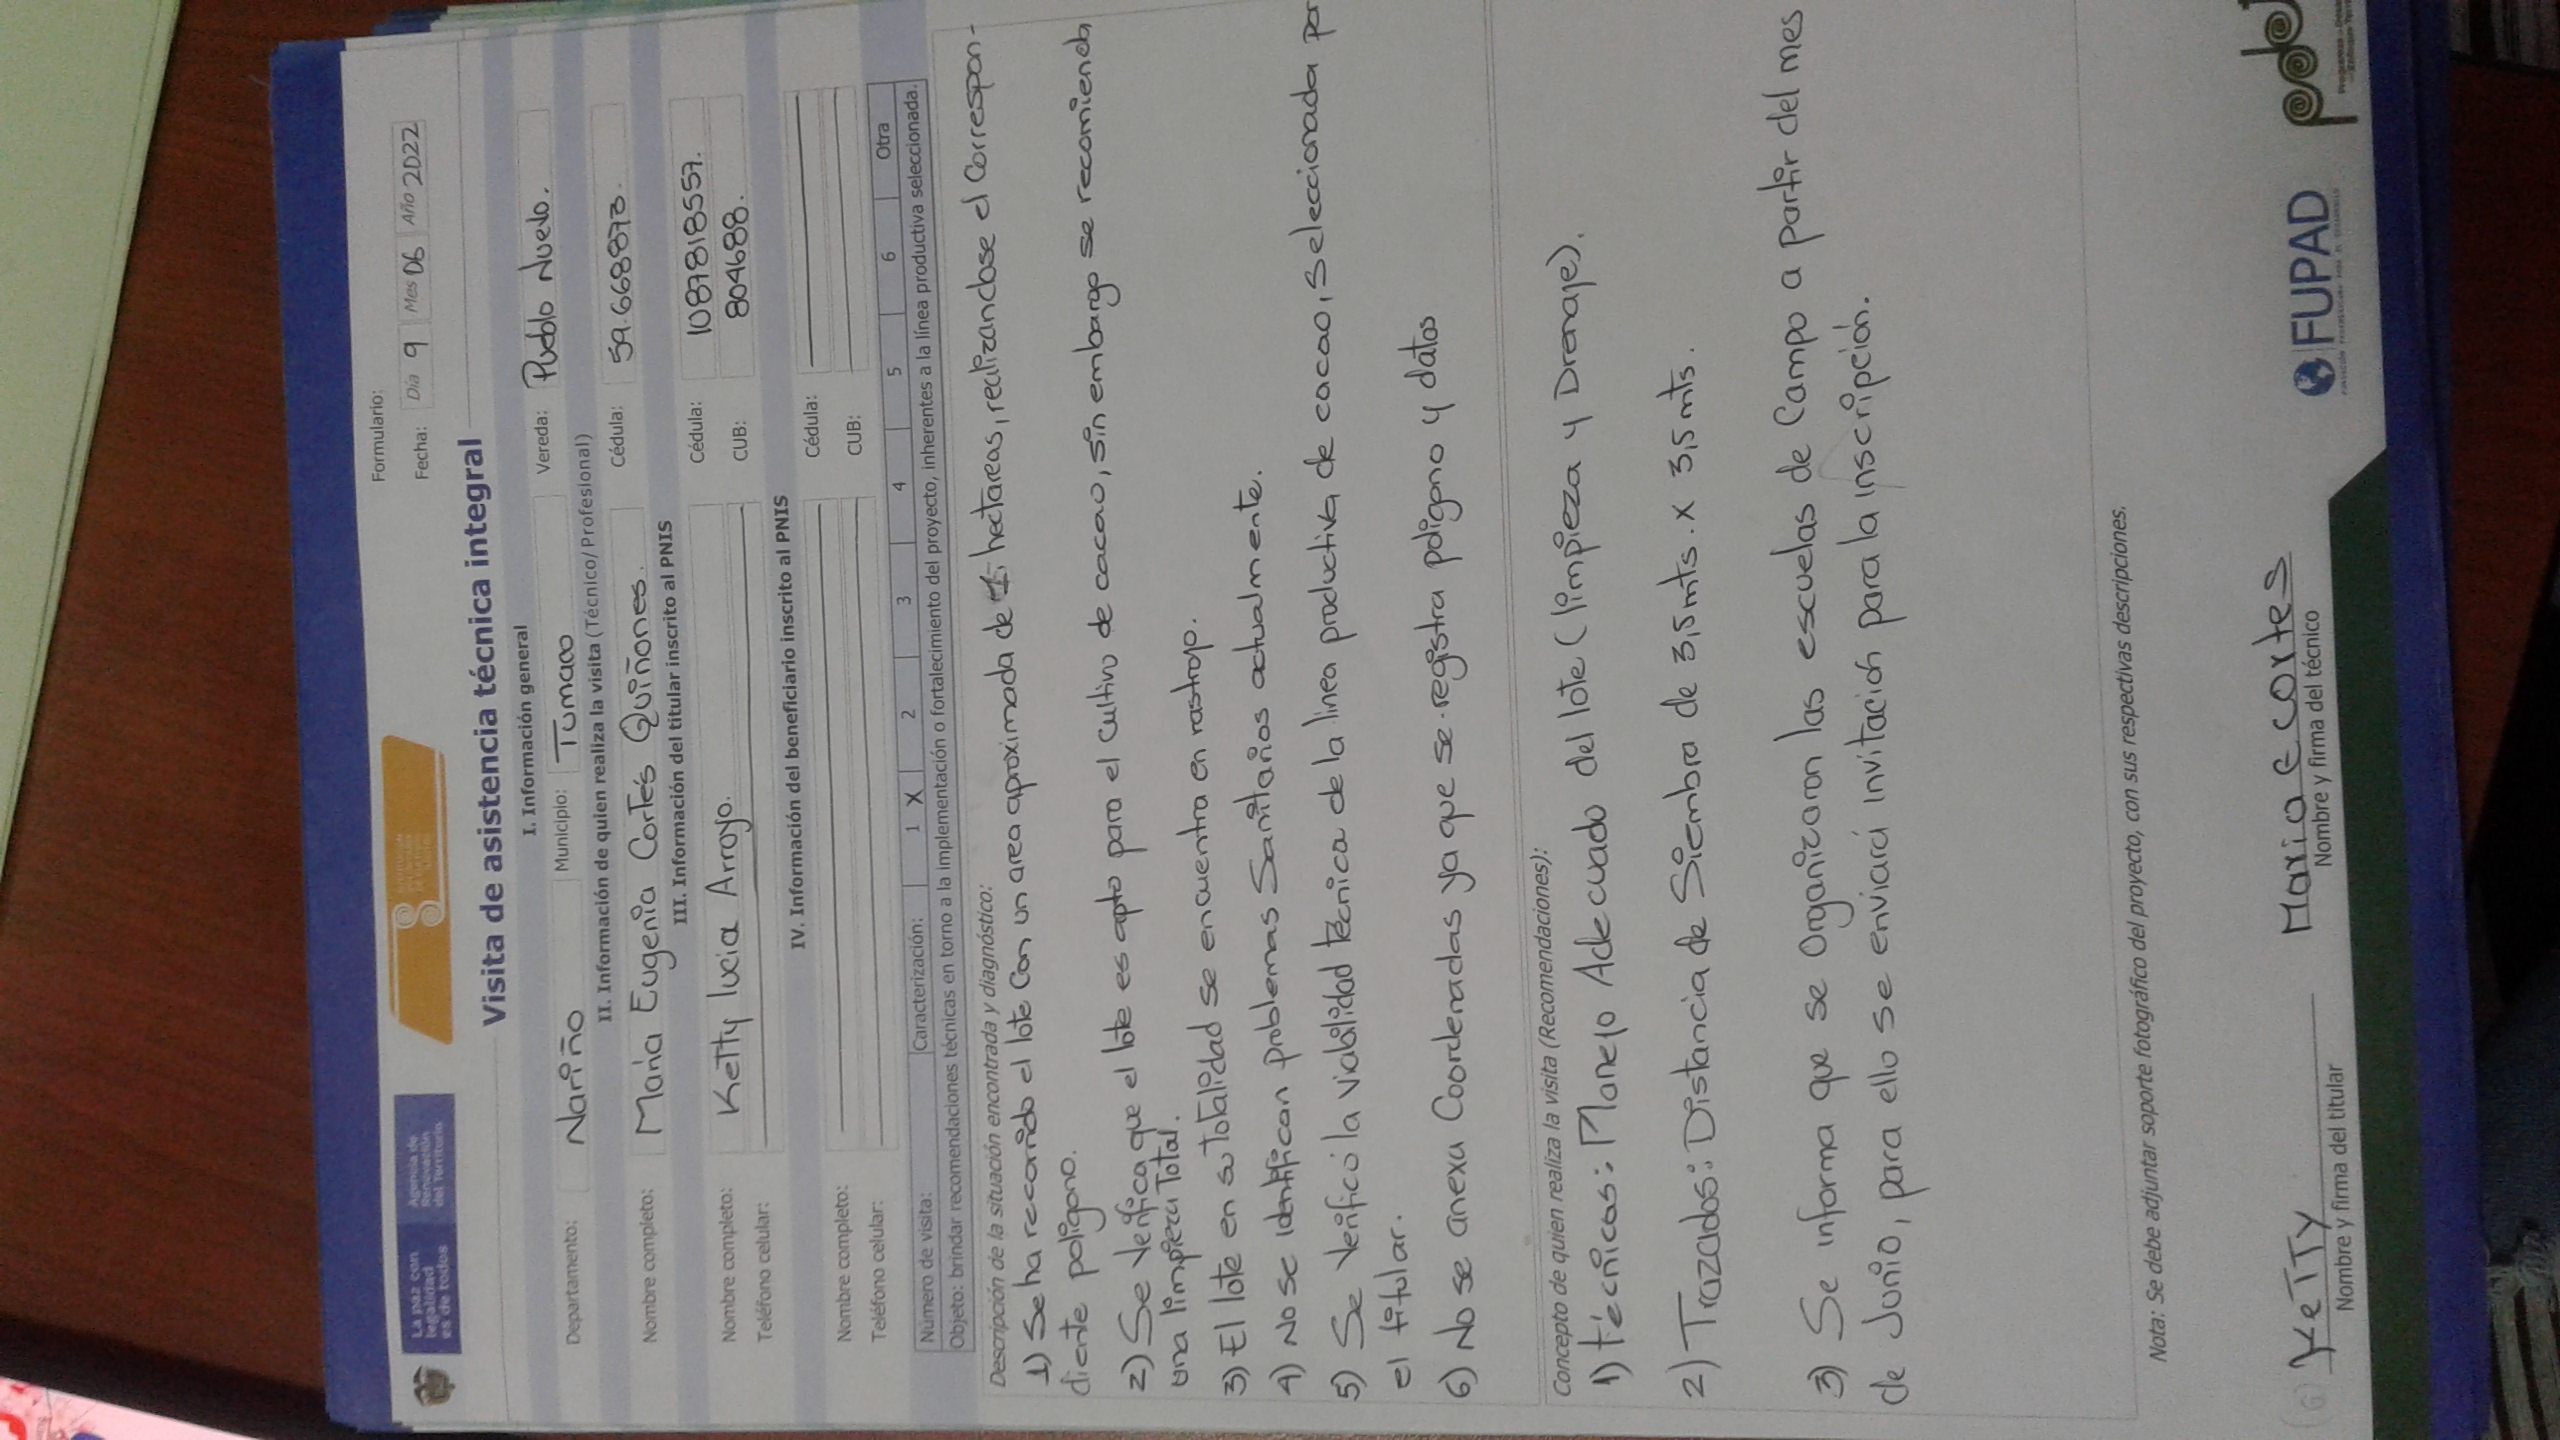 La paz con
legalidad
es de todos
Agencia de
Renovación
del Territorio
Formulario:
Fecha: Día 9 Mes 06 Año 2022
Visita de asistencia técnica integral
I. Información general
Departamento: Nariño Municipio: Tumaco Vereda: Pueblo Nuevo.
II. Información de quien realiza la visita (Técnico/ Profesional)
Nombre completo: María Eugenia Cortés Quiñones. Cédula: 59.668873.
III. Información del titular inscrito al PNIS
Nombre completo: Ketty lucia Arroyo. Cédula: 1087818557.
Teléfono celular: CUB: 804688.
IV. Información del beneficiario inscrito al PNIS
Nombre completo: Cédula:
Teléfono celular: CUB:
Número de visita: Caracterización: 1 X 2 3 4 5 6 Otra
Objeto: brindar recomendaciones técnicas en torno a la implementación o fortalecimiento del proyecto, inherentes a la línea productiva seleccionada.
Descripción de la situación encontrada y diagnóstico:
1) Se ha recorrido el lote con un area aproximada de 1 hectareas, realizandose el correspon-
diente poligono.
2) Se verifica que el lote es apto para el cultivo de cacao, sin embargo se recomienda
una limpieza Total.
3) El lote en su totalidad se encuentra en rastrojo.
4) No se identifican problemas Sanitarios actualmente.
5) Se verificó la viabilidad técnica de la linea productiva de cacao, seleccionada por
el titular.
6) No se anexa Coordenadas ya que se registra poligono y datos
Concepto de quien realiza la visita (Recomendaciones):
1) técnicas: Manejo Adecuado del lote (limpieza y Drenaje).
2) Trazados: Distancia de Siembra de 3,5 mts. x 3,5 mts.
3) Se informa que se Organizaron las escuelas de Campo a partir del mes
de Junio, para ello se enviará invitación para la inscripción.
Nota: Se debe adjuntar soporte fotográfico del proyecto, con sus respectivas descripciones.
KeTTy Maria E Cortes
Nombre y firma del titular Nombre y firma del técnico
FUPAD